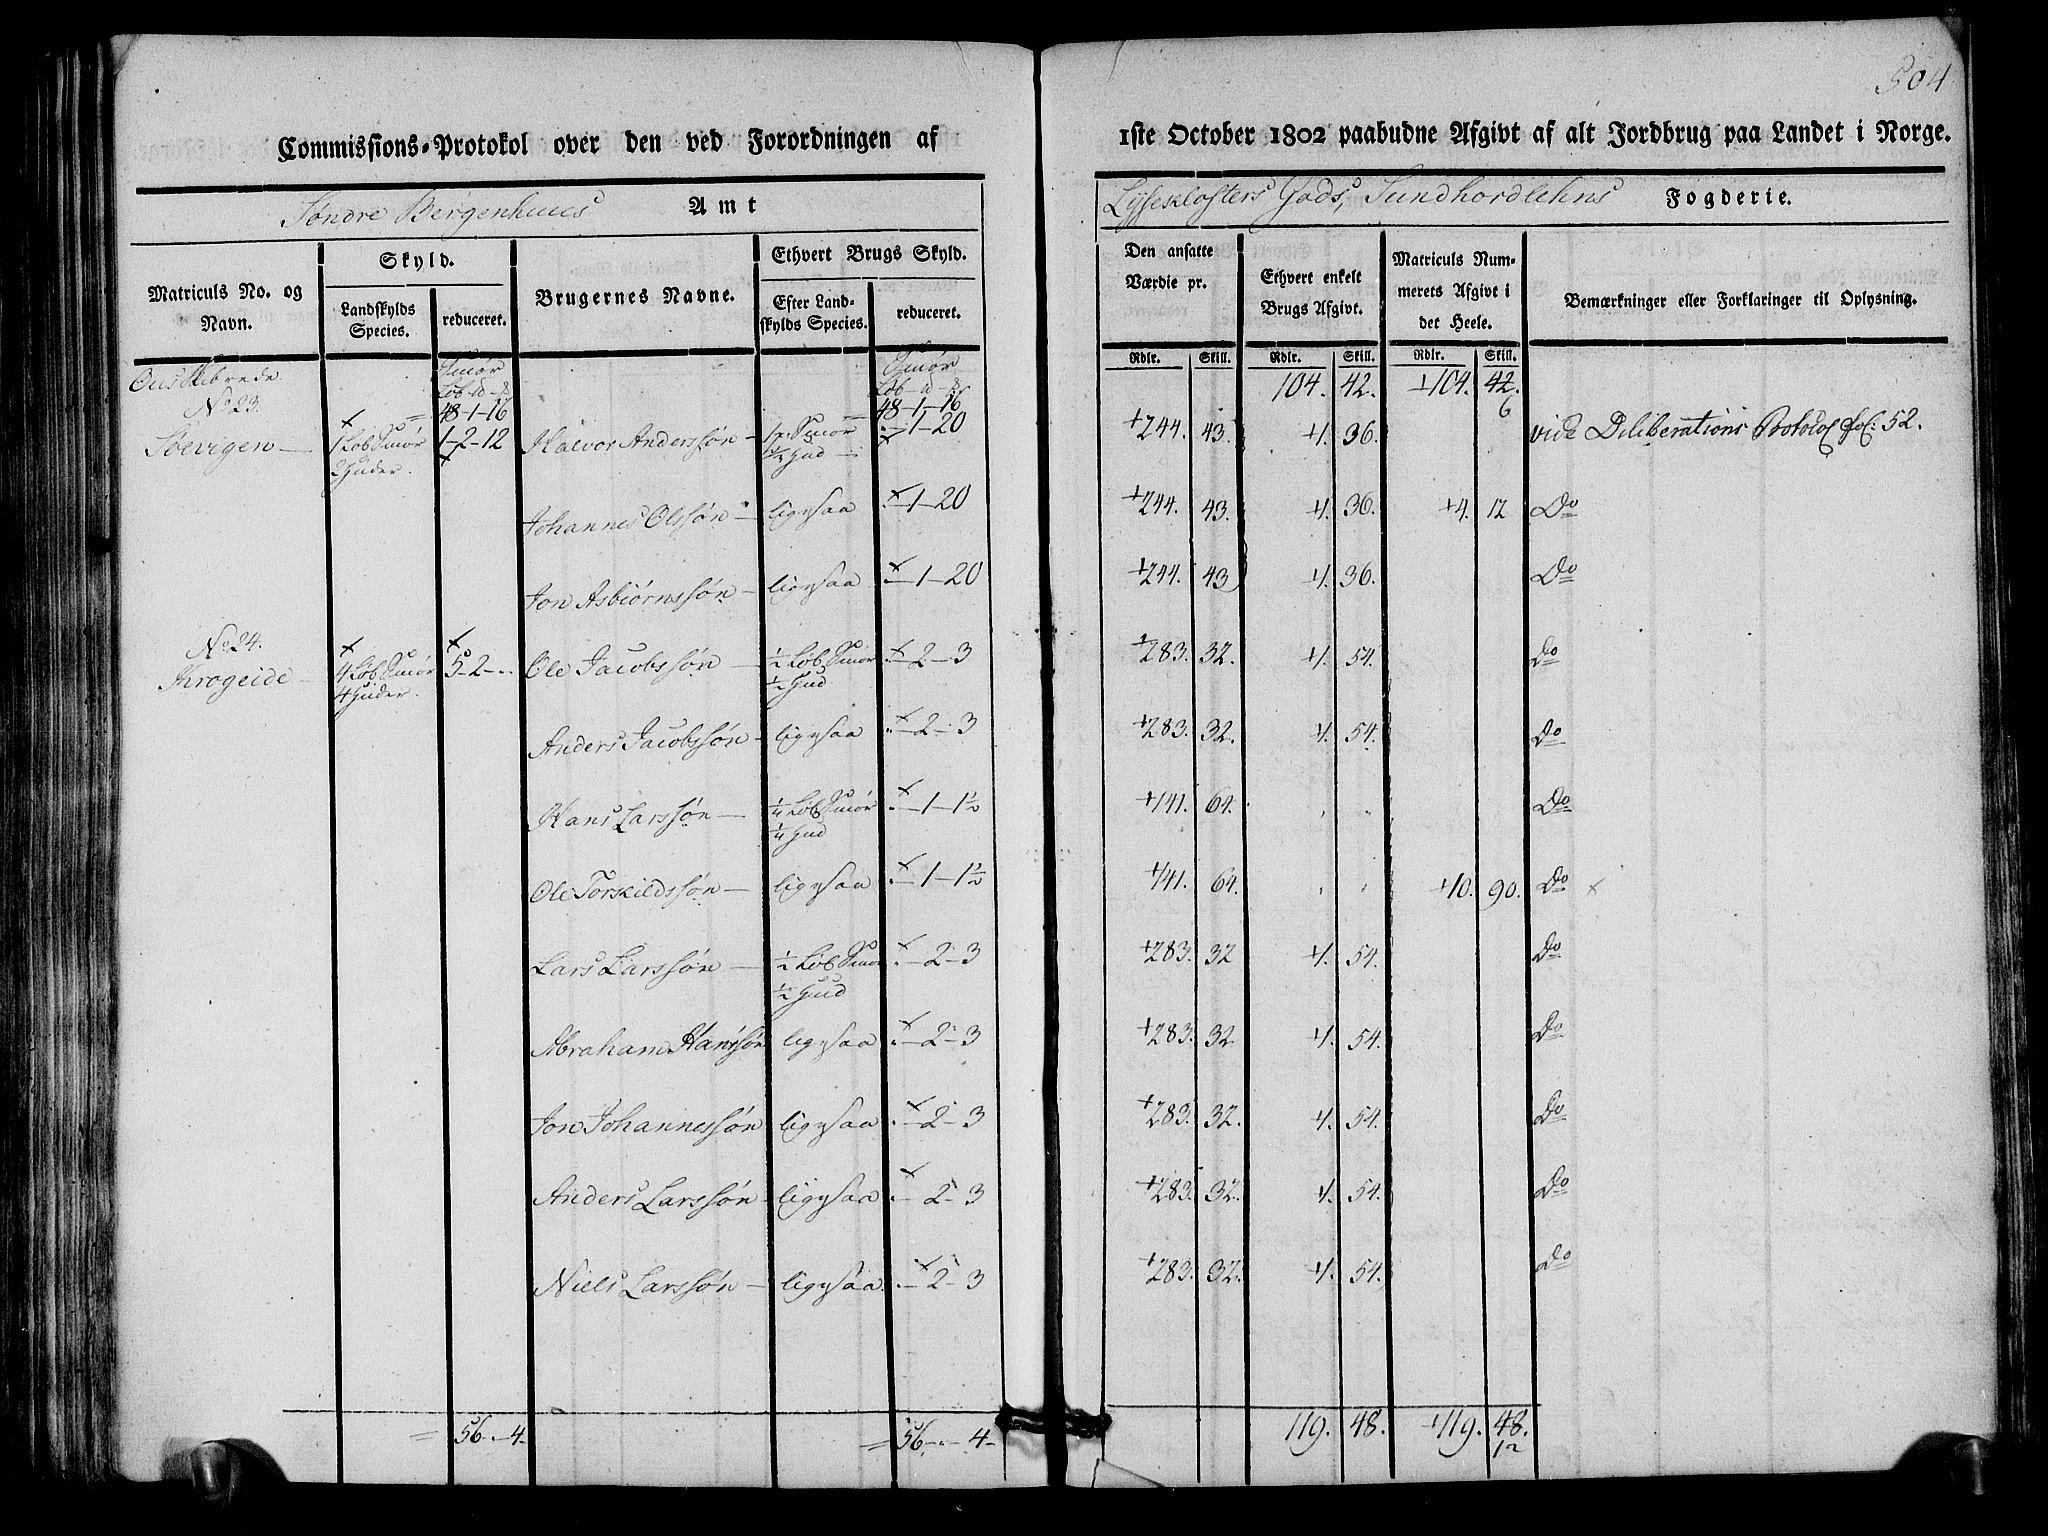 504
Commissions-Protokol over den ved Forordningen af 1ste October 1802 paabudne Afgivt af alt Jordbrug paa Landet i Norge.
Søndre Bergenhuus Amt Lysekloster Gods, Sundhordlehns Fogderie.
Matriculs No. og Navn. Skyld. Landskylds Species. reduceret. Brugernes Navne. Ethvert Brugs Skyld. Efter Landskylds Species. reduceret. Den ansatte Værdie pr. Ethvert enkelt Brugs Afgivt. Matriculs Nummerets Afgivt i det Heele. Bemærkninger eller Forklaringer til Oplysning.
Rdlr. Skill. Rdlr. Skill. Rdlr. Skill.
Smør Smør
48-1-16 48-1-16 104. 42. +104. 42. 6
No 23. Søevigen 1 Løb Smør 2 Huder. 1-2-12 Halvor Anderssøn Smør Hud 1-20 +244. 43. +1. 36. vide Deliberations Protocol fol: 52.
Johannes Olssøn ligesaa 1-20 +244. 43. +1. 36. +4. 12 Do
Jon Asbiørnssøn ligesaa 1-20 +244. 43 +1. 36. Do
No 24. Krogeide 4 Løb Smør 4 Huder. 5-2- Ole Jacobssøn ½ Løb Smør ½ Hud 2-3 +283. 32. +1. 54. Do
Anders Jacobssøn ligesaa 2-3 +283. 32. +1. 54. Do
Hans Larssøn ¼ Løb Smør ¼ Hud 1-1½ +141. 64. Do
Ole Torskildssøn ligesaa 1-1½ +141. 64. +10. 90. Do
Lars Larssøn ½ Løb Smør ½ Hud 2-3 +283. 32 +1. 54. Do
Abraham Hanssøn ligesaa 2-3 +283. 32 +1. 54. Do
Jon Johannessøn ligesaa 2-3 +283. 32. +1. 54. Do
Anders Larssøn ligesaa 2-3 +283. 32. +1. 54. Do
Niels Larssøn ligesaa 2-3 +283. 32. +1. 54. Do
56.-4- 56.-4- 119. 48. +119. 48. 12